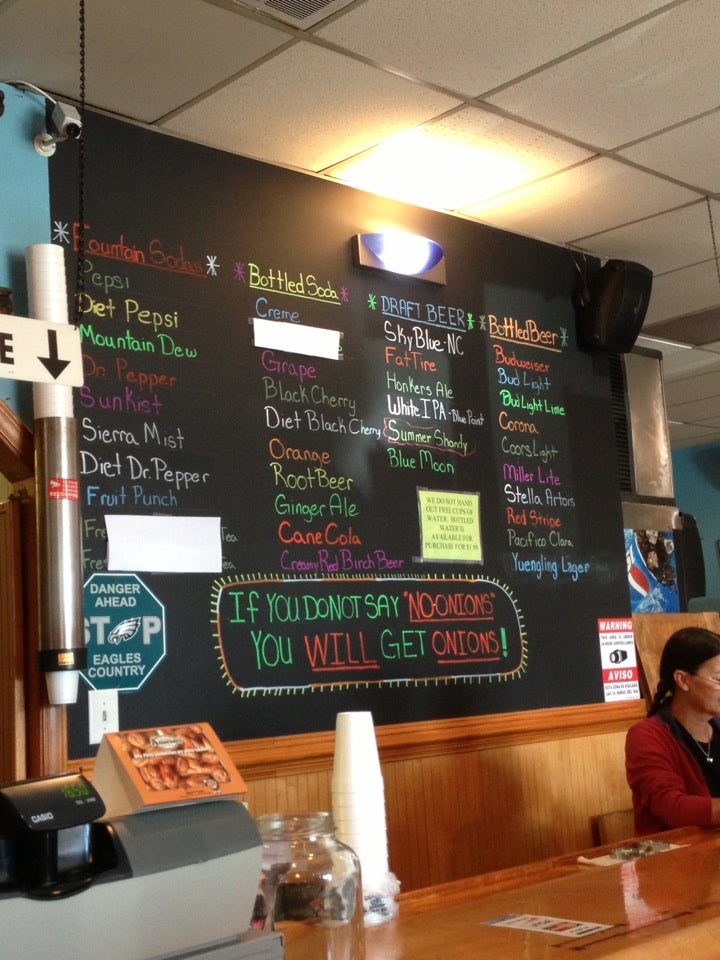 Fountain Sodas
Pepsi
Diet Pepsi
Mountain Dew
Dr. Pepper
SunKist
Sierra Mist
Diet Dr. Pepper
Fruit Punch
Fre Tea
Fre Tea
Bottled Soda
Creme
Grape
Black Cherry
Diet Black Cherry
Orange
Root Beer
Ginger Ale
Cane Cola
Creamy Red Birch Beer
DRAFT BEER
Sky Blue-NC
Fat Tire
Honkers Ale
White IPA-Blue Point
Summer Shandy
Blue Moon
Bottled Beer
Budweiser
Bud Light
Bud Light Lime
Corona
Coors Light
Miller Lite
Stella Artois
Red Stripe
Pacifico Clara
Yuengling Lager
WE DO NOT HAND
OUT FREE CUPS OF
WATER. BOTTLED
WATER IS
AVAILABLE FOR
PURCHASE FOR $1.50
IF YOU DO NOT SAY "NO-ONIONS"
YOU WILL GET ONIONS!
E
DANGER
AHEAD
STOP
EAGLES
COUNTRY
WARNING
AVISO
CASIO